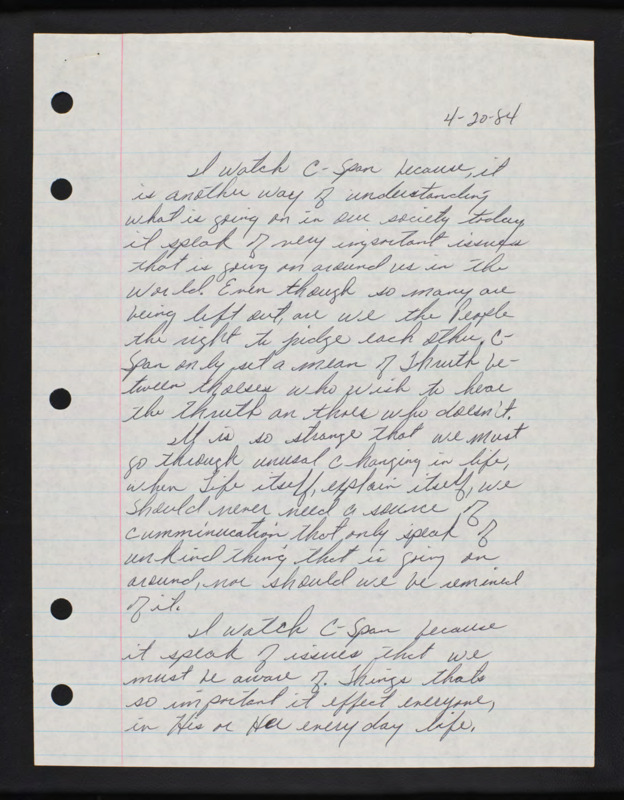 4-20-84
I watch C-Span because, it
is another way of understanding
what is going on in our society today
it speak of very important issues
that is going on around us in the
world. Even though so many are
being left out, are we the People
the right to pidge each other, C-
Span only set a mean of Thruth be-
tween thoeses who wish to hear
the thruth an thoes who doesn't.
It is so strange that we must
go through unusal Changing in life,
when Life itself, explain itself, we
should never need a source of
cumminucation that only speak of
unkind thing that is going on
around, nor should we be remined
of it.
I watch C-Span because
it speak of issues that we
must be aware of. Things thats
so important it effect everyone,
in His or Her everyday life.